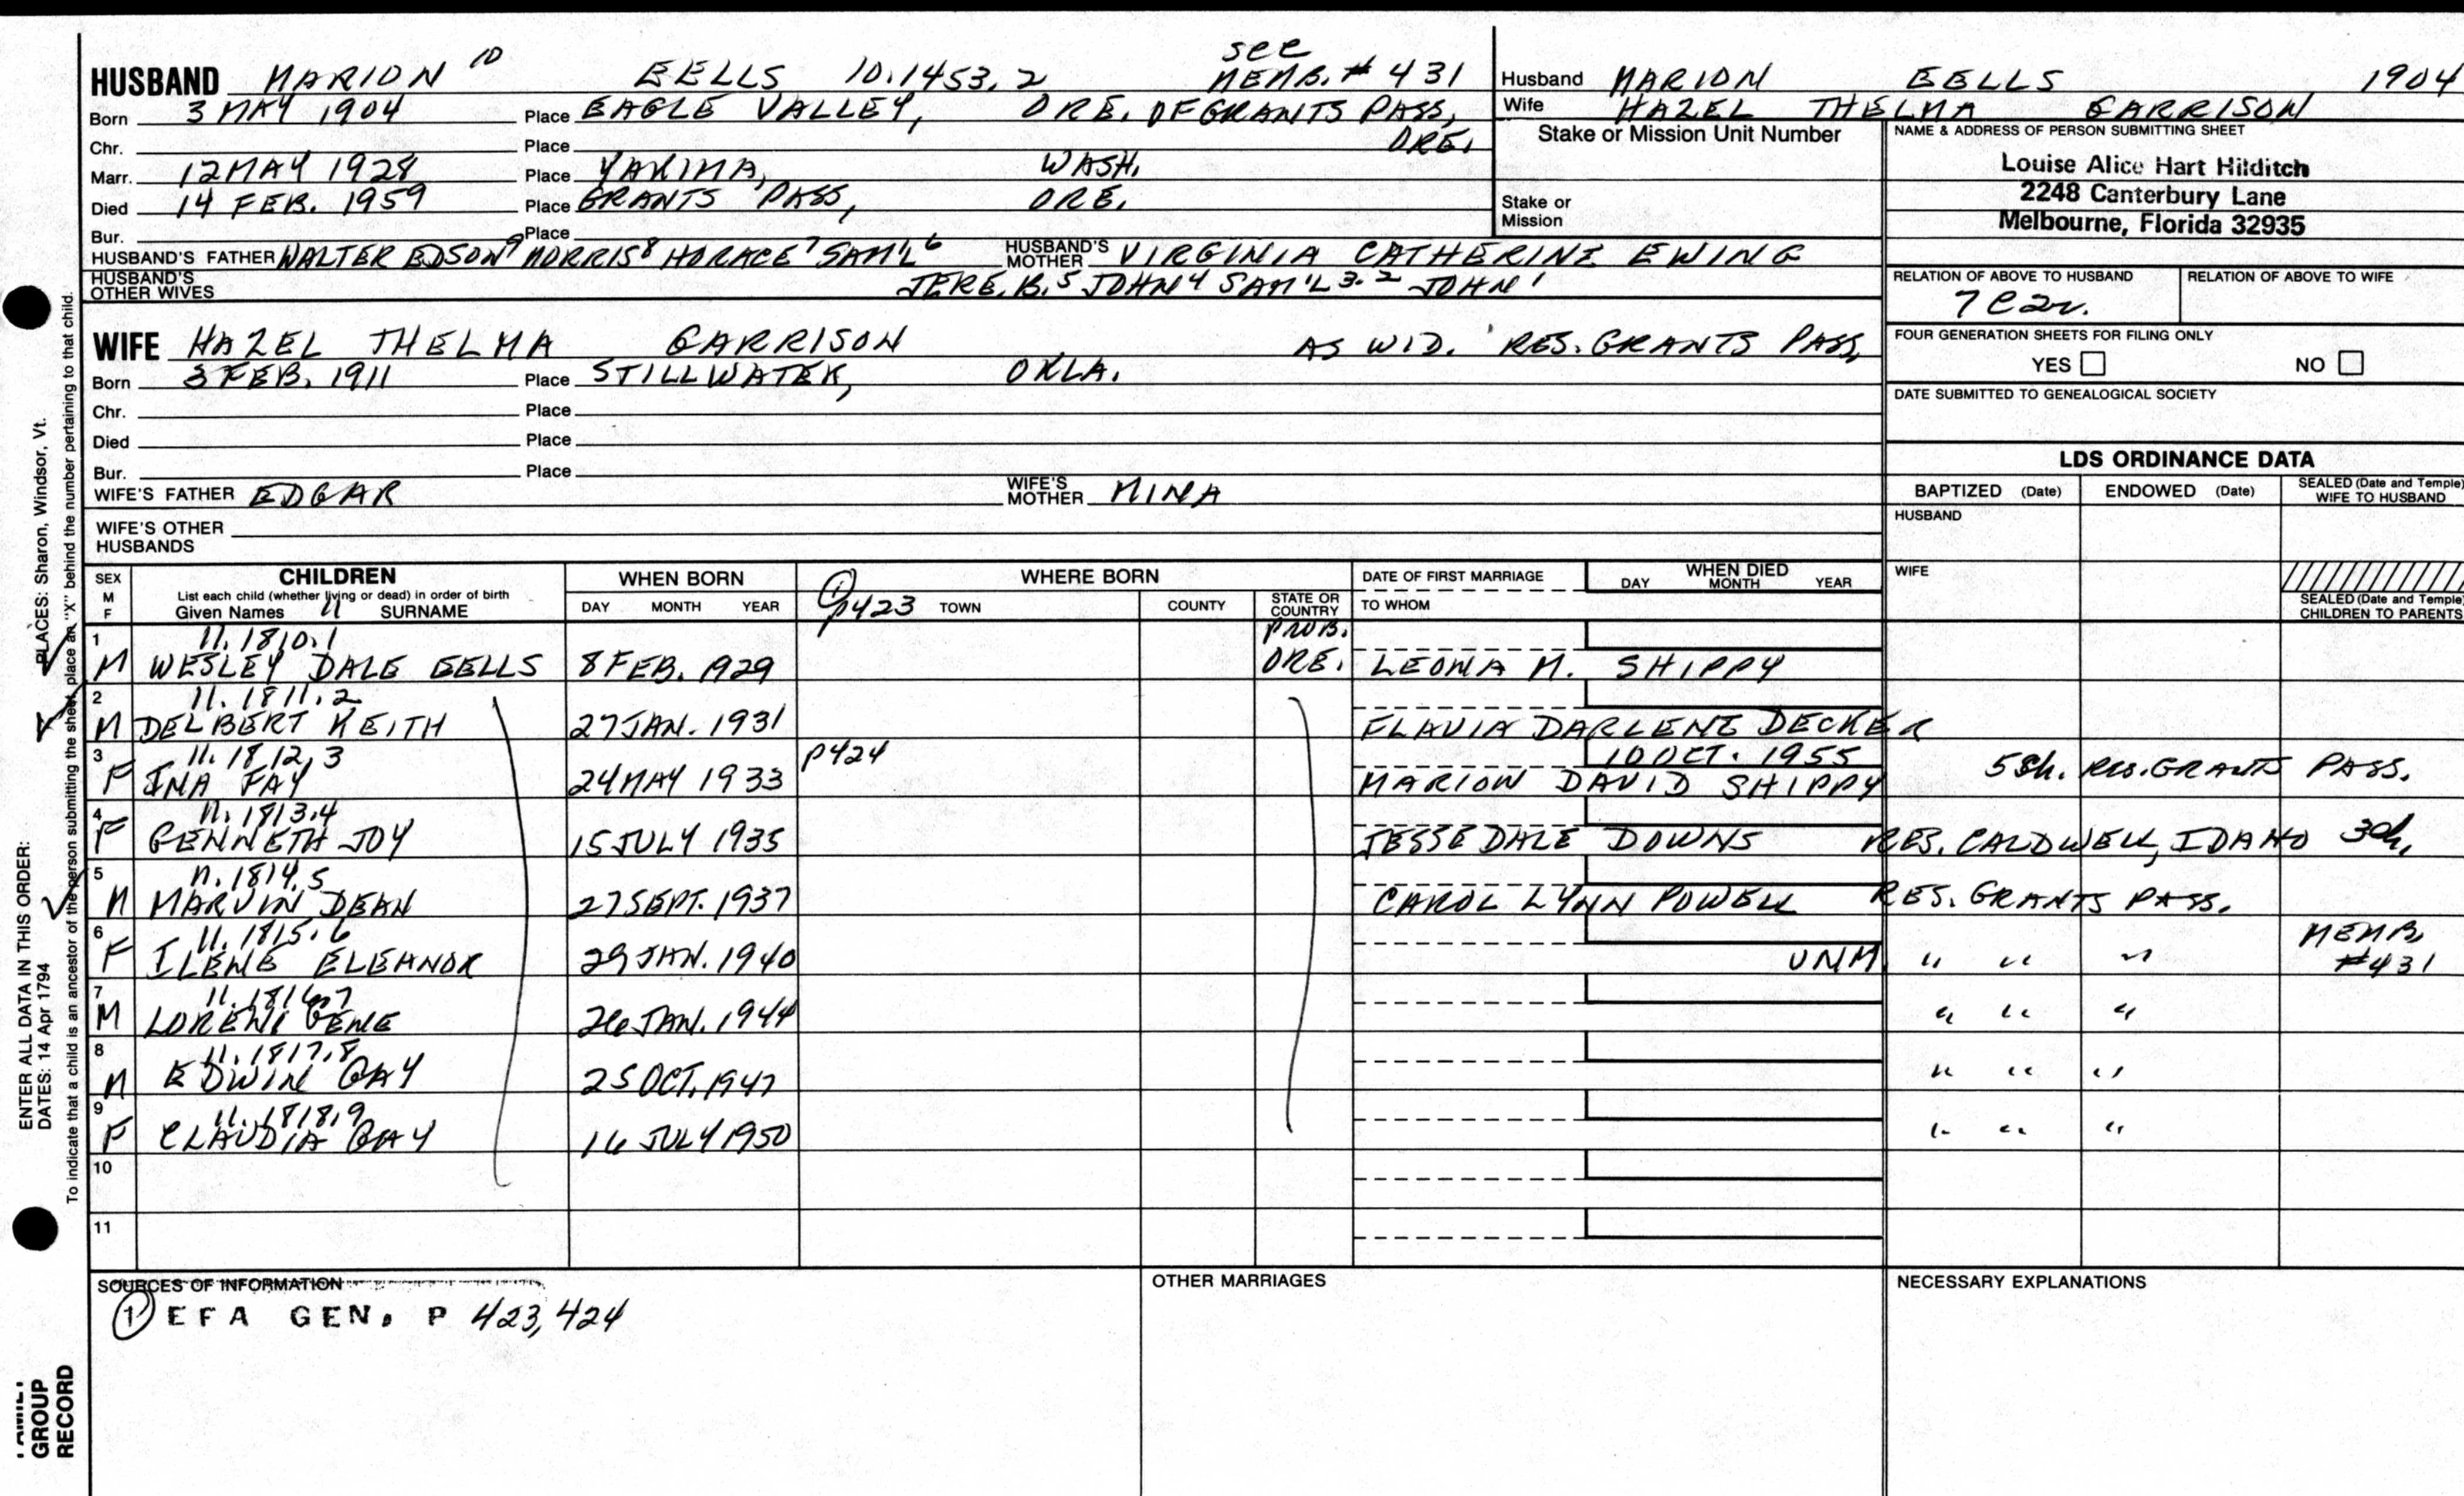 see
HUSBAND MARION 10 EELLS 10.1453.2 MEMB. # 431
Born 3 MAY 1904 Place EAGLE VALLEY, ORE. OF GRANTS PASS,
Chr. Place ORE.
Marr. 12 MAY 1928 Place YAKIMA, WASH.
Died 14 FEB. 1959 Place GRANTS PASS, ORE.
Bur. Place
HUSBAND'S FATHER WALTER EDSON9 MORRIS8 HORACE7 SAM'L6 HUSBAND'S MOTHER VIRGINIA CATHERINE EWING
HUSBAND'S OTHER WIVES JERE. B.5 JOHN4 SAM'L3.2 JOHN1
WIFE HAZEL THELMA GARRISON AS WID. RES. GRANTS PASS,
Born 3 FEB. 1911 Place STILLWATER, OKLA.
Chr. Place
Died Place
Bur. Place
WIFE'S FATHER EDGAR WIFE'S MOTHER MINA
WIFE'S OTHER HUSBANDS
Husband MARION EELLS 1904
Wife HAZEL THELMA GARRISON
Stake or Mission Unit Number
Stake or Mission
NAME & ADDRESS OF PERSON SUBMITTING SHEET
Louise Alice Hart Hilditch
2248 Canterbury Lane
Melbourne, Florida 32935
RELATION OF ABOVE TO HUSBAND RELATION OF ABOVE TO WIFE
7C2r.
FOUR GENERATION SHEETS FOR FILING ONLY
YES NO
DATE SUBMITTED TO GENEALOGICAL SOCIETY
LDS ORDINANCE DATA
BAPTIZED (Date) ENDOWED (Date) SEALED (Date and Temple) WIFE TO HUSBAND
HUSBAND
WIFE
SEALED (Date and Temple) CHILDREN TO PARENTS
SEX M F CHILDREN WHEN BORN WHERE BORN DATE OF FIRST MARRIAGE WHEN DIED
List each child (whether living or dead) in order of birth
Given Names 11 SURNAME DAY MONTH YEAR ① P423 TOWN COUNTY STATE OR COUNTRY TO WHOM DAY MONTH YEAR
1 11.1810.1 PROB.
M WESLEY DALE EELLS 8 FEB. 1929 ORE. LEONA M. SHIPPY
2 11.1811.2
M DELBERT KEITH 27 JAN. 1931 FLAVIA DARLENE DECKER
3 11.1812.3 P424 10 OCT. 1955
F INA FAY 24 MAY 1933 MARION DAVID SHIPPY 5 ch. RES. GRANTS PASS.
4 11.1813.4
F GENNETH JOY 15 JULY 1935 JESSE DALE DOWNS RES. CALDWELL, IDAHO 3 ch.
5 11.1814.5
M MARVIN DEAN 27 SEPT. 1937 CAROL LYNN POWELL RES. GRANTS PASS.
6 11.1815.6
F ILENE ELEANOR 29 JAN. 1940 UNM. " " " MEMB. #431
7 11.1816.7
M LOREN GENE 26 JAN. 1944 " " "
8 11.1817.8
M EDWIN GAY 25 OCT. 1947 " " "
9 11.1818.9
F CLAUDIA GAY 16 JULY 1950 " " "
10
11
SOURCES OF INFORMATION
① EFA GEN. P 423, 424
OTHER MARRIAGES
NECESSARY EXPLANATIONS
ENTER ALL DATA IN THIS ORDER:
DATES: 14 Apr 1794 PLACES: Sharon, Windsor, Vt.
To indicate that a child is an ancestor of the person submitting the sheet, place an "X" behind the number pertaining to that child.
GROUP
RECORD